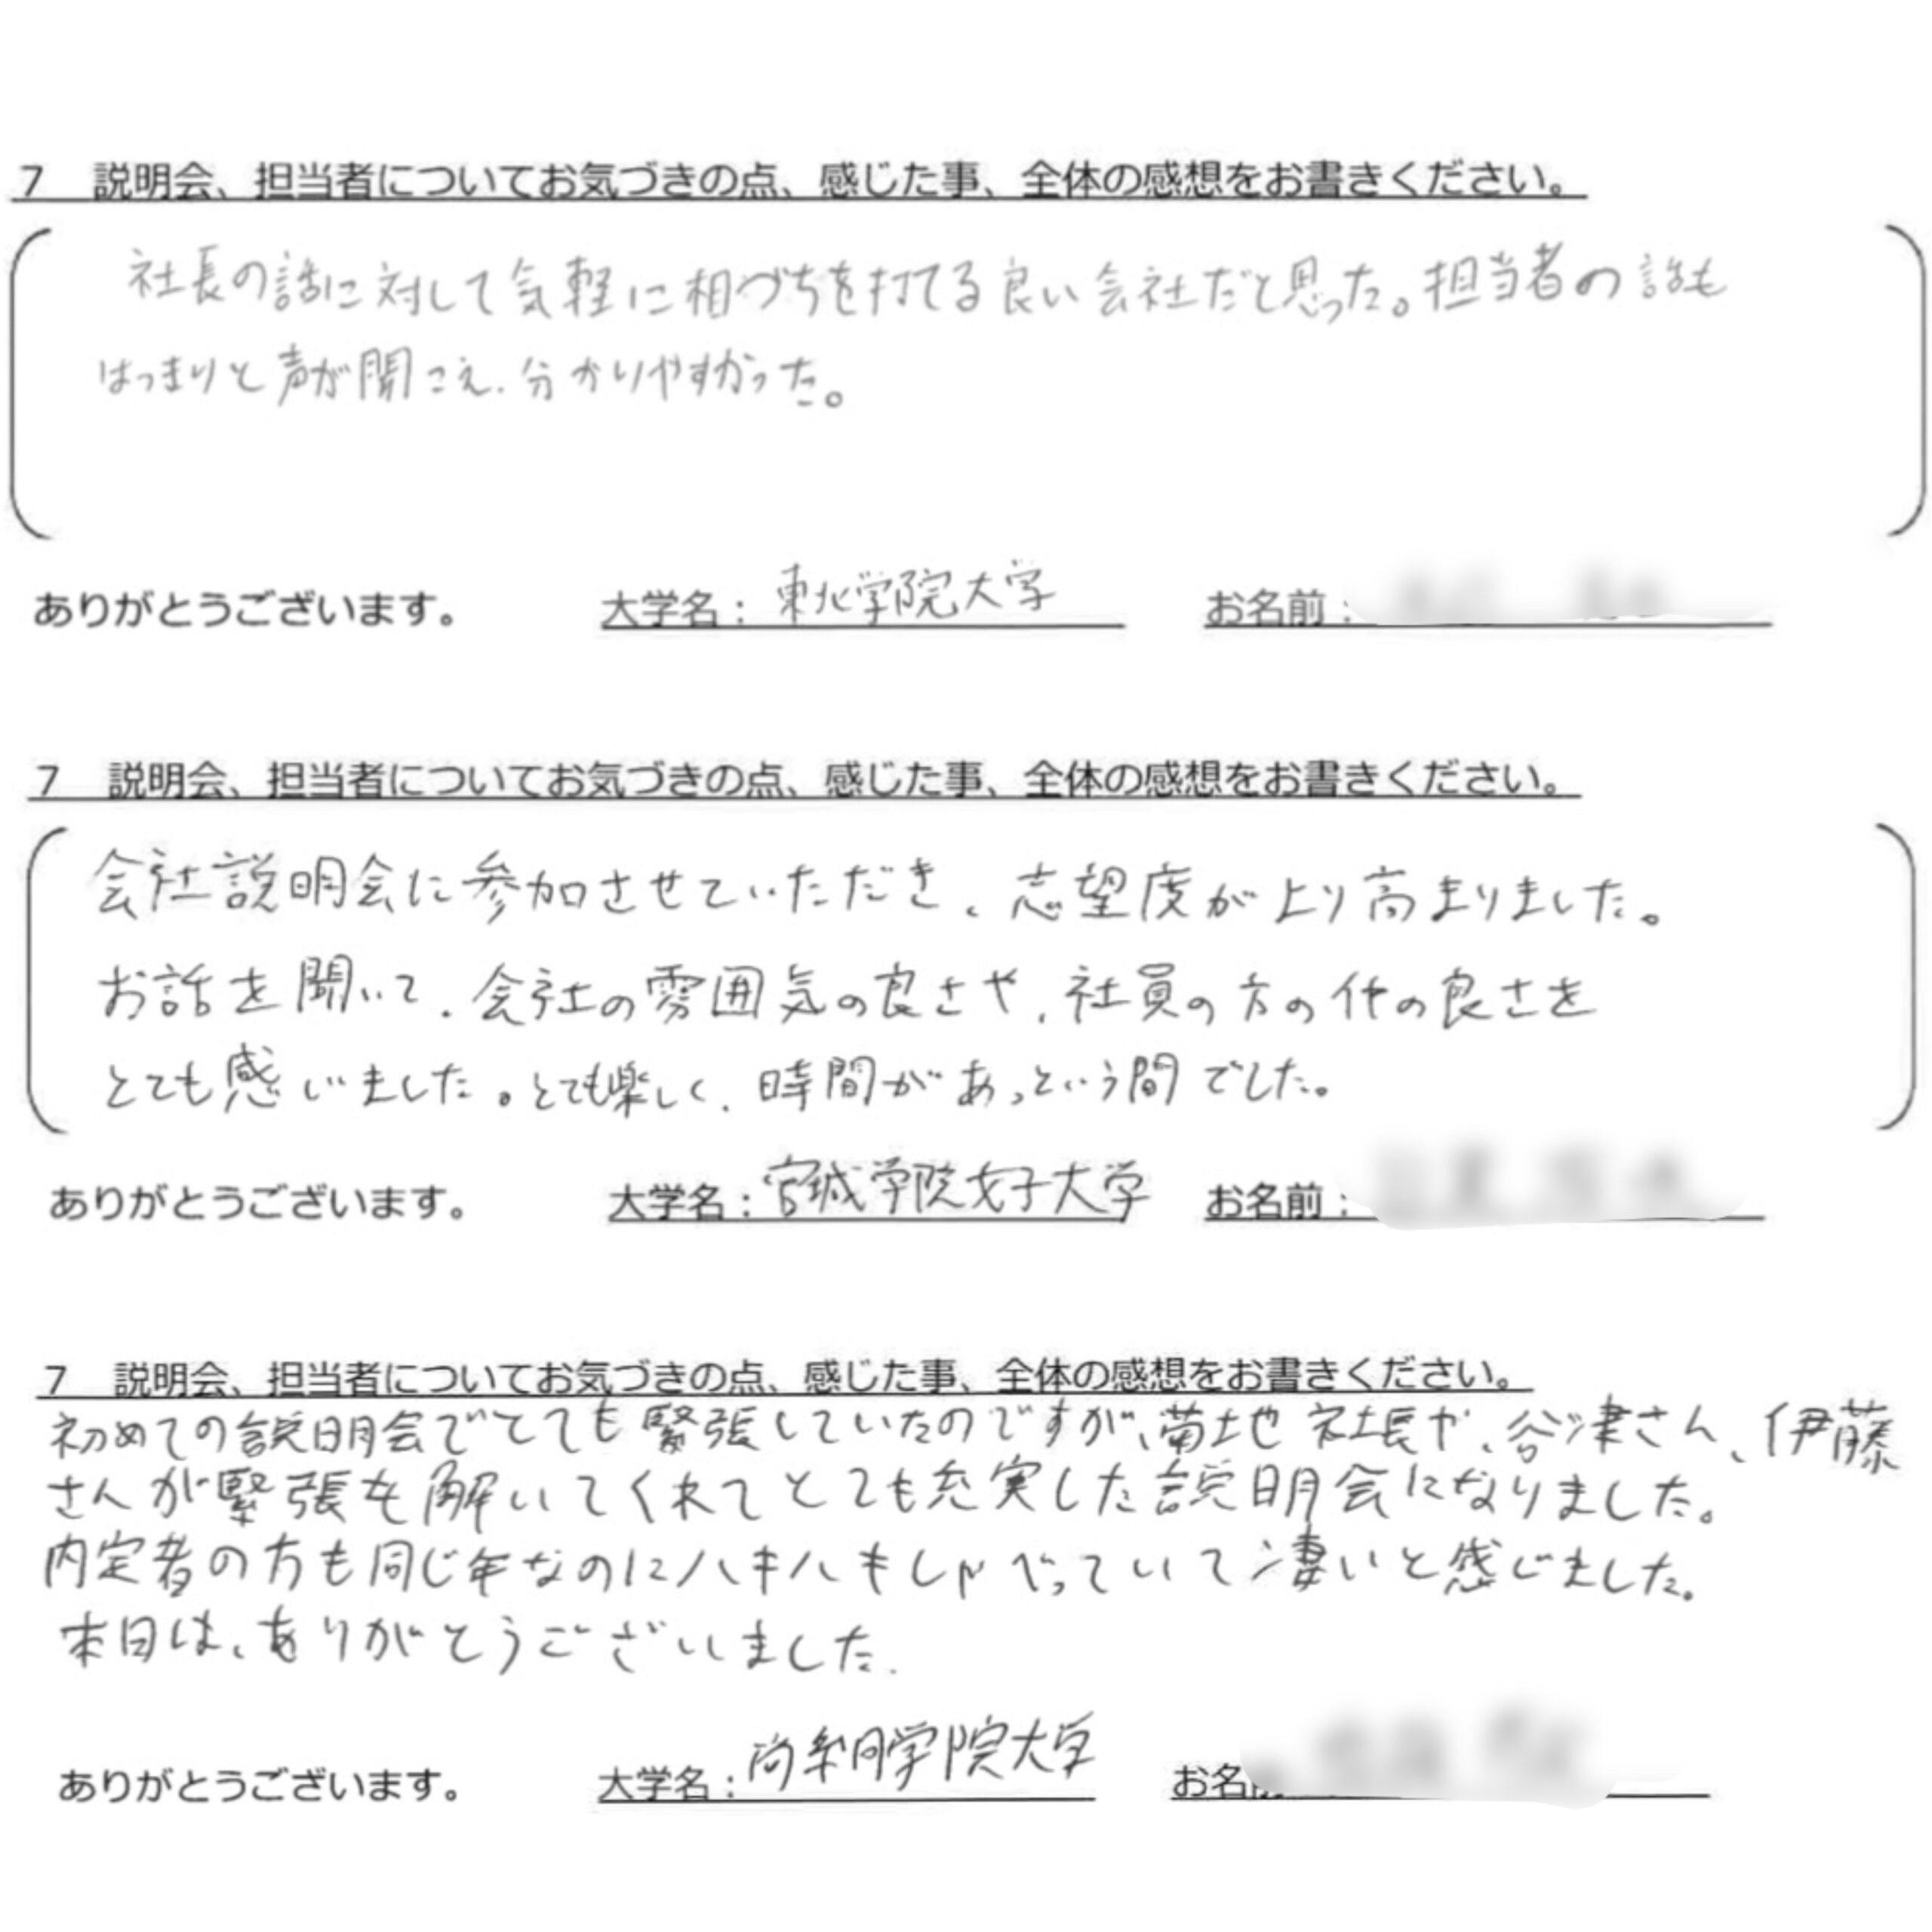 7　説明会、担当者についてお気づきの点、感じた事、全体の感想をお書きください。
社長の話に対して気軽に相づちを打てる良い会社だと思った。担当者の話も
はっきりと声が聞こえ、分かりやすかった。
ありがとうございます。　大学名：東北学院大学　お名前：
7　説明会、担当者についてお気づきの点、感じた事、全体の感想をお書きください。
会社説明会に参加させていただき、志望度がより高まりました。
お話を聞いて、会社の雰囲気の良さや、社員の方の仲の良さを
とても感じました。とても楽しく、時間があっという間でした。
ありがとうございます。　大学名：宮城学院女子大学　お名前：
7　説明会、担当者についてお気づきの点、感じた事、全体の感想をお書きください。
初めての説明会でとても緊張していたのですが、菊地社長や、谷津さん、伊藤
さんが緊張を解いてくれてとても充実した説明会になりました。
内定者の方も同じ年なのにハキハキしゃべっていて凄いと感じました。
本日は、ありがとうございました.
ありがとうございます。　大学名：尚絅学院大学　お名前